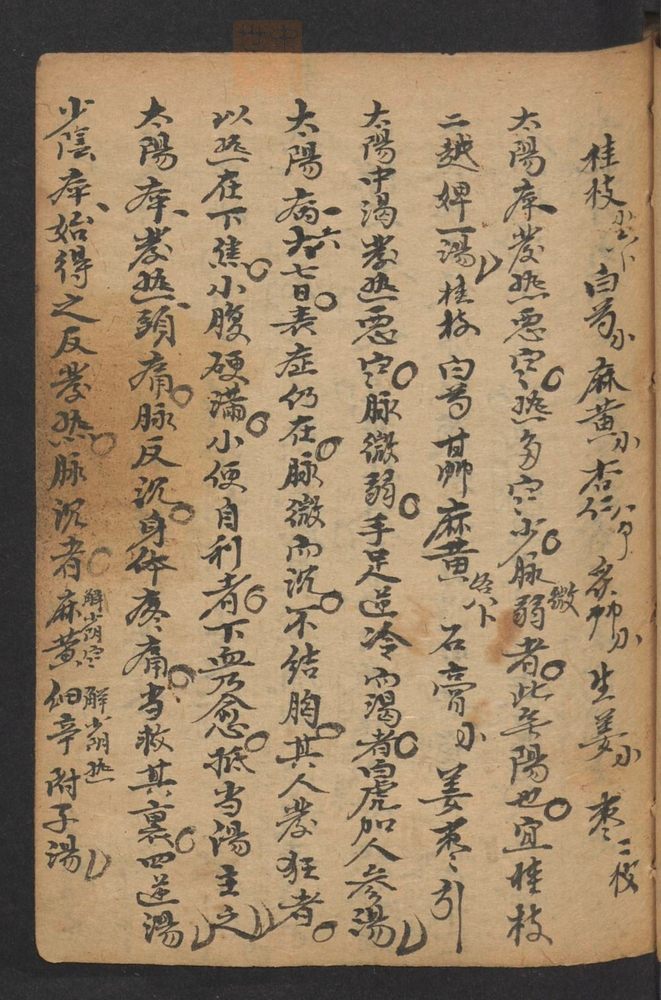 桂枝 白芍 麻黄 杏仁 炙艸 生姜 枣二枚
太陽病發热恶寒。热多寒少。脉微弱者。此無陽也。宜桂枝
二越婢一湯 桂枝 白芍 甘艸 麻黄各八卜 石膏 姜枣引
太陽中渴發热恶寒。脉微弱。手足逆冷而渴者。白虎加人参湯
太陽病六七日。表症仍在。脉微而沉。不结胸。其人發狂者。
以热在下焦。小腹硬满。小便自利者。下血乃愈。抵当湯主之
太陽病、發热頭痛。脉反沉。身体疼痛。当救其裏。四逆湯
少陰病、始得之反發热。脉沉者。麻黄细辛附子湯